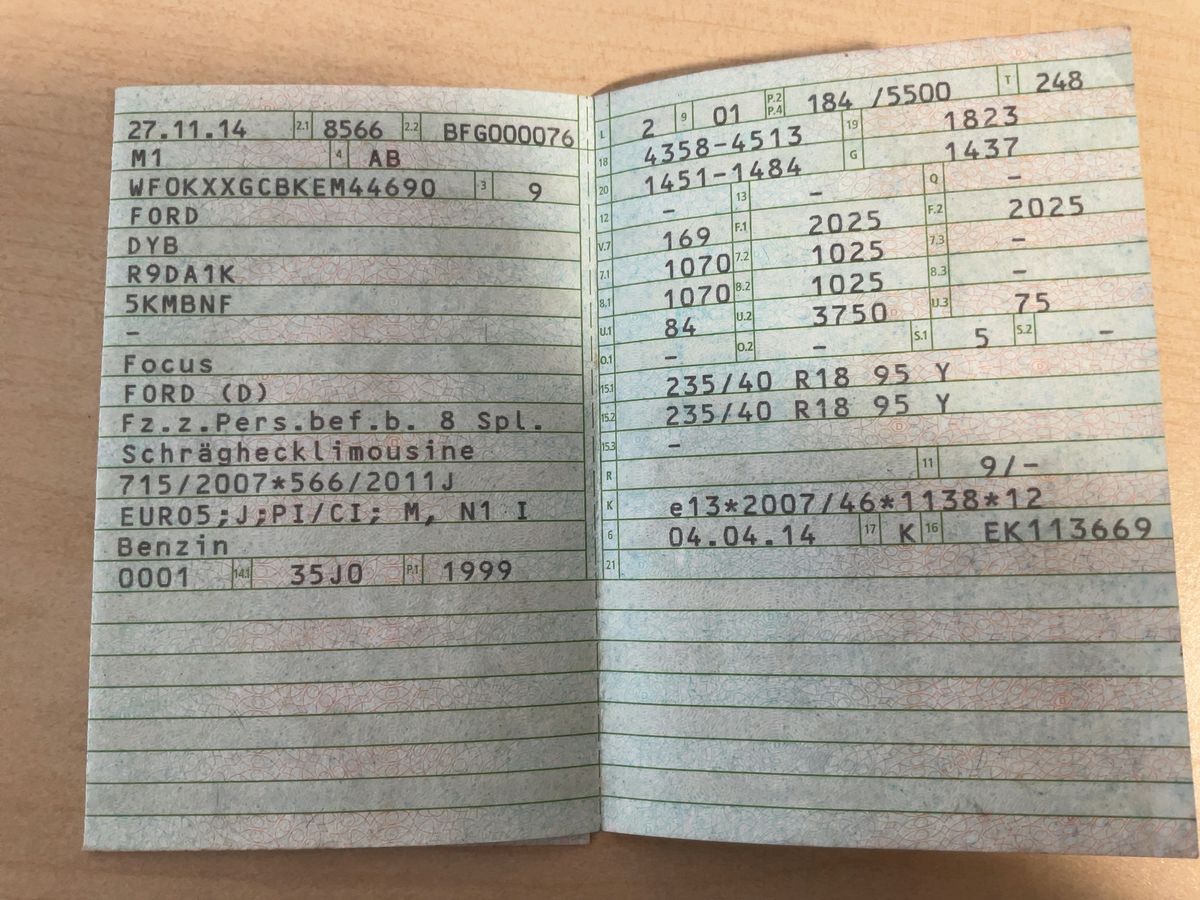 27.11.14 2.1 8566 2.2 BFG000076
M1 4 AB
WF0KXXGCBKEM44690 3 9
FORD
DYB
R9DA1K
5KMBNF
–
Focus
FORD (D)
Fz.z.Pers.bef.b. 8 Spl.
Schräghecklimousine
715/2007*566/2011J
EURO5;J;PI/CI; M, N1 I
Benzin
0001 14.1 35J0 P.1 1999
L 2 9 01 P.2 P.4 184 /5500 T 248
18 4358-4513 19 1823
20 1451-1484 G 1437
12 – 13 – Q –
V.7 169 F.1 2025 F.2 2025
7.1 1070 7.2 1025 7.3 –
8.1 1070 8.2 1025 8.3 –
U.1 84 U.2 3750 U.3 75
O.1 – O.2 – S.1 5 S.2 –
15.1 235/40 R18 95 Y
15.2 235/40 R18 95 Y
15.3 –
R 11 9/-
K e13*2007/46*1138*12
6 04.04.14 17 K 16 EK113669
21